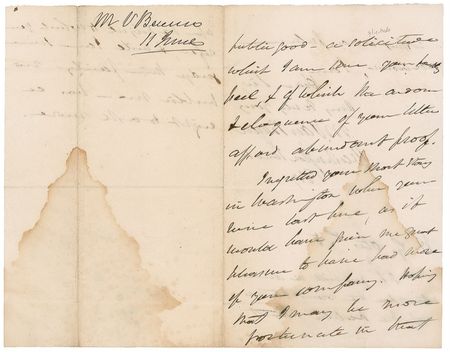 Mr V Buren
11 June
public good – a solicitude
which I am sure you
feel & of which the ardor
& eloquence of your letter
afford abundant proof.
I regretted your short stay
in Washington when you
were last here, as it
would have given me great
pleasure to have had more
of your company. Hoping
that I may be more
fortunate in that